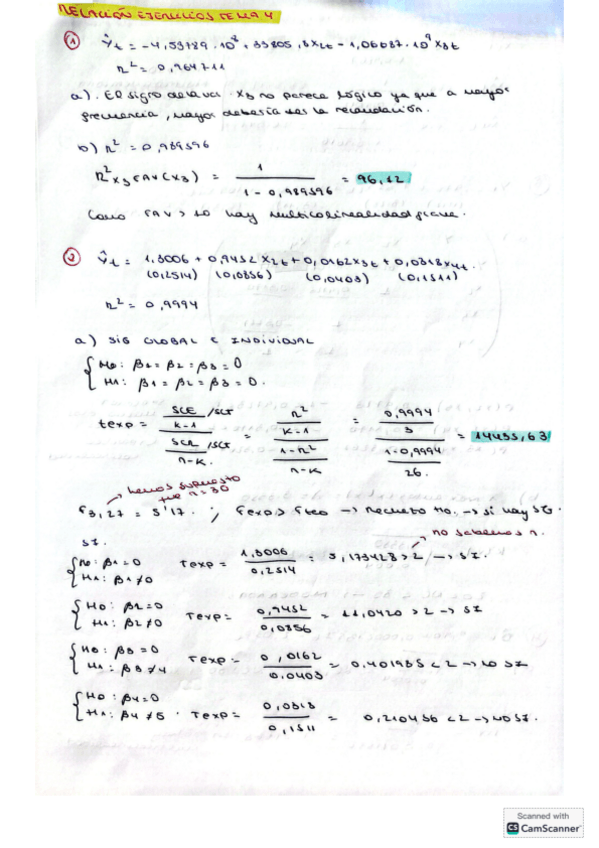 RELACIÓN EJERCICIOS TEMA 4
① Ŷt = -4,53189·10⁸ + 33805,8x2t - 1,06687·10⁹ x3t
R² = 0,964711
a). El signo de la var. x3 no parece lógico ya que a mayor
presencia, mayor debería ser la recaudación.
b) R² = 0,989596
R² x3 FAV(x3) = 1 / 1 - 0,989596 = 96,12
Como FAV > 10 hay multicolinealidad grave.
② Ŷt = 1,3006 + 0,9452 x2t + 0,0162x3t + 0,0318x4t.
(0,2514) (0,0856) (0,0403) (0,1511)
R² = 0,9994
a) SIG GLOBAL E INDIVIDUAL
H0: β1 = β2 = β3 = 0
H1: β1 = β2 = β3 = 0.
texp = SCE/SCT / K-1 / SCR/SCT / n-K = R² / K-1 / 1-R² / n-K = 0,9994 / 3 / 1-0,9994 / 26. = 14435,63
hemos supuesto que n = 30
F3,27 = 3'17. ; Fexp > Fteo → Rechazo H0. → si hay SG.
SI.
no sabemos n.
H0: β1 = 0 Texp = 1,3006 / 0,2514 = 5,173428 > 2 → SI.
H1: β1 ≠ 0
H0: β2 = 0 Texp = 0,9452 / 0,0856 = 11,0420 > 2 → SI
H1: β2 ≠ 0
H0: β3 = 0 Texp = 0,0162 / 0,0403 = 0,401985 < 2 → NO SI
H1: β3 ≠ 4
H0: β4 = 0 Texp = 0,0318 / 0,1511 = 0,210456 < 2 → NO SI.
H1: β4 ≠ 5.
Scanned with
CS CamScanner